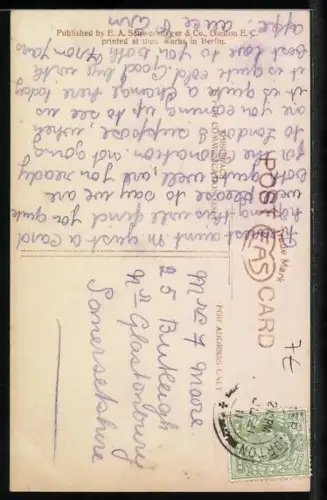 Published by E. A. Schwerdtfeger & Co., London E. C.
printed at their works in Berlin.
POST CARD
EAS
Trade Mark
FOR COMMUNICATION
FOR ADDRESS ONLY
Dearest aunt M just a card
hoping this will find you quite
well please to say we are
both quite well, are you ready
for the Coronation. not going
to London I suppose. when
are you coming up to see us
it is quite a change here today
it is quite cold Good bye with
best love to you both from your
affec. niece
Mrs F Moore
25 Butleigh
Nr Glastonbury
Somersetshire
77